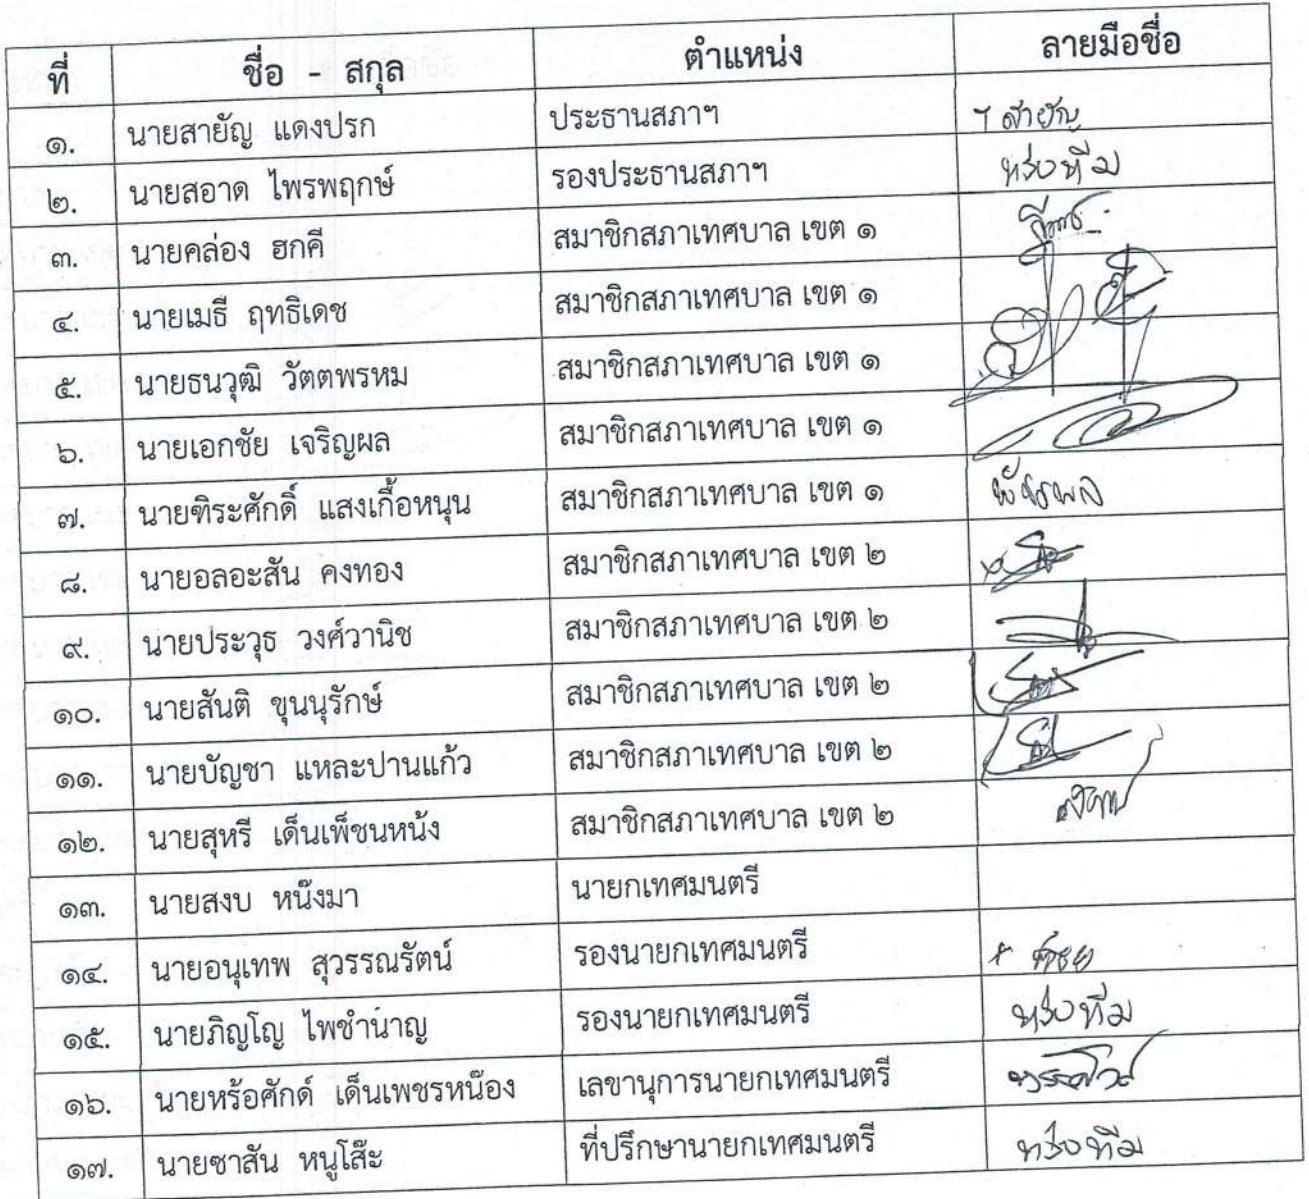 ที่ ชื่อ - สกุล ตำแหน่ง ลายมือชื่อ
๑. นายสายัญ แดงปรก ประธานสภาฯ
๒. นายสอาด ไพรพฤกษ์ รองประธานสภาฯ
๓. นายคล่อง ฮกคี สมาชิกสภาเทศบาล เขต ๑
๔. นายเมธี ฤทธิเดช สมาชิกสภาเทศบาล เขต ๑
๕. นายธนวุฒิ วัตตพรหม สมาชิกสภาเทศบาล เขต ๑
๖. นายเอกชัย เจริญผล สมาชิกสภาเทศบาล เขต ๑
๗. นายฑิระศักดิ์ แสงเกื้อหนุน สมาชิกสภาเทศบาล เขต ๑
๘. นายอลอะสัน คงทอง สมาชิกสภาเทศบาล เขต ๒
๙. นายประวุธ วงศ์วานิช สมาชิกสภาเทศบาล เขต ๒
๑๐. นายสันติ ขุนนุรักษ์ สมาชิกสภาเทศบาล เขต ๒
๑๑. นายบัญชา แหละปานแก้ว สมาชิกสภาเทศบาล เขต ๒
๑๒. นายสุหรี เด็นเพ็ชนหน้ง สมาชิกสภาเทศบาล เขต ๒
๑๓. นายสงบ หนึงมา นายกเทศมนตรี
๑๔. นายอนุเทพ สุวรรณรัตน์ รองนายกเทศมนตรี
๑๕. นายภิญโญ ไพชำนาญ รองนายกเทศมนตรี
๑๖. นายหร้อศักด์ เด็นเพชรหน๊อง เลขานุการนายกเทศมนตรี
๑๗. นายซาสัน หนูโส๊ะ ที่ปรึกษานายกเทศมนตรี